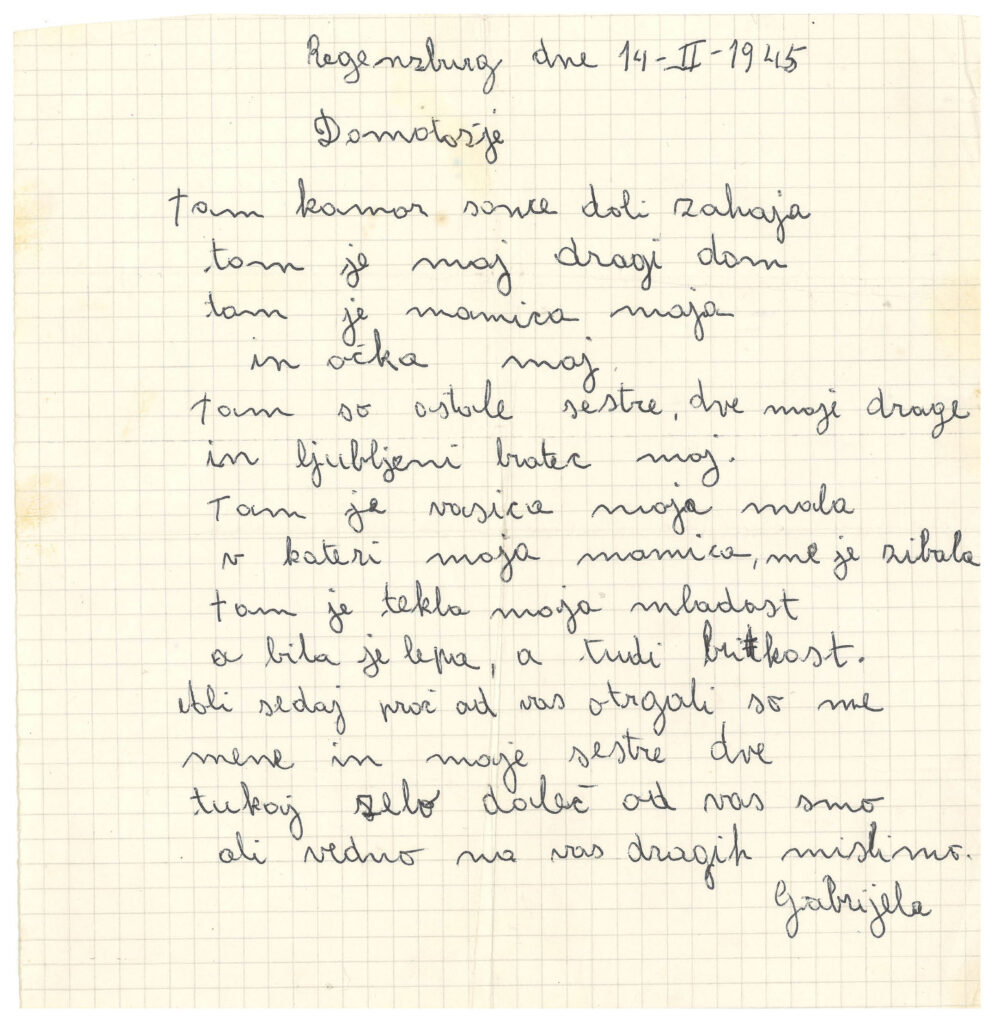 Regenzburg dne 14-II-1945
Domotožje
Tam kamor sonce doli zahaja
tam je moj dragi dom
tam je mamica moja
in očka moj
Tam so ostale sestre, dve moji drage
in ljubljeni bratec moj.
Tam je vasica moja mala
v kateri moja mamica, me je zibala
tam je tekla moja mladost
a bila je lepa, a tudi britkost.
Ali sedaj proč od vas otrgali so me
mene in moje sestre dve
tukaj zelo daleč od vas smo
ali vedno na vas dragih mislimo.
Gabrijela